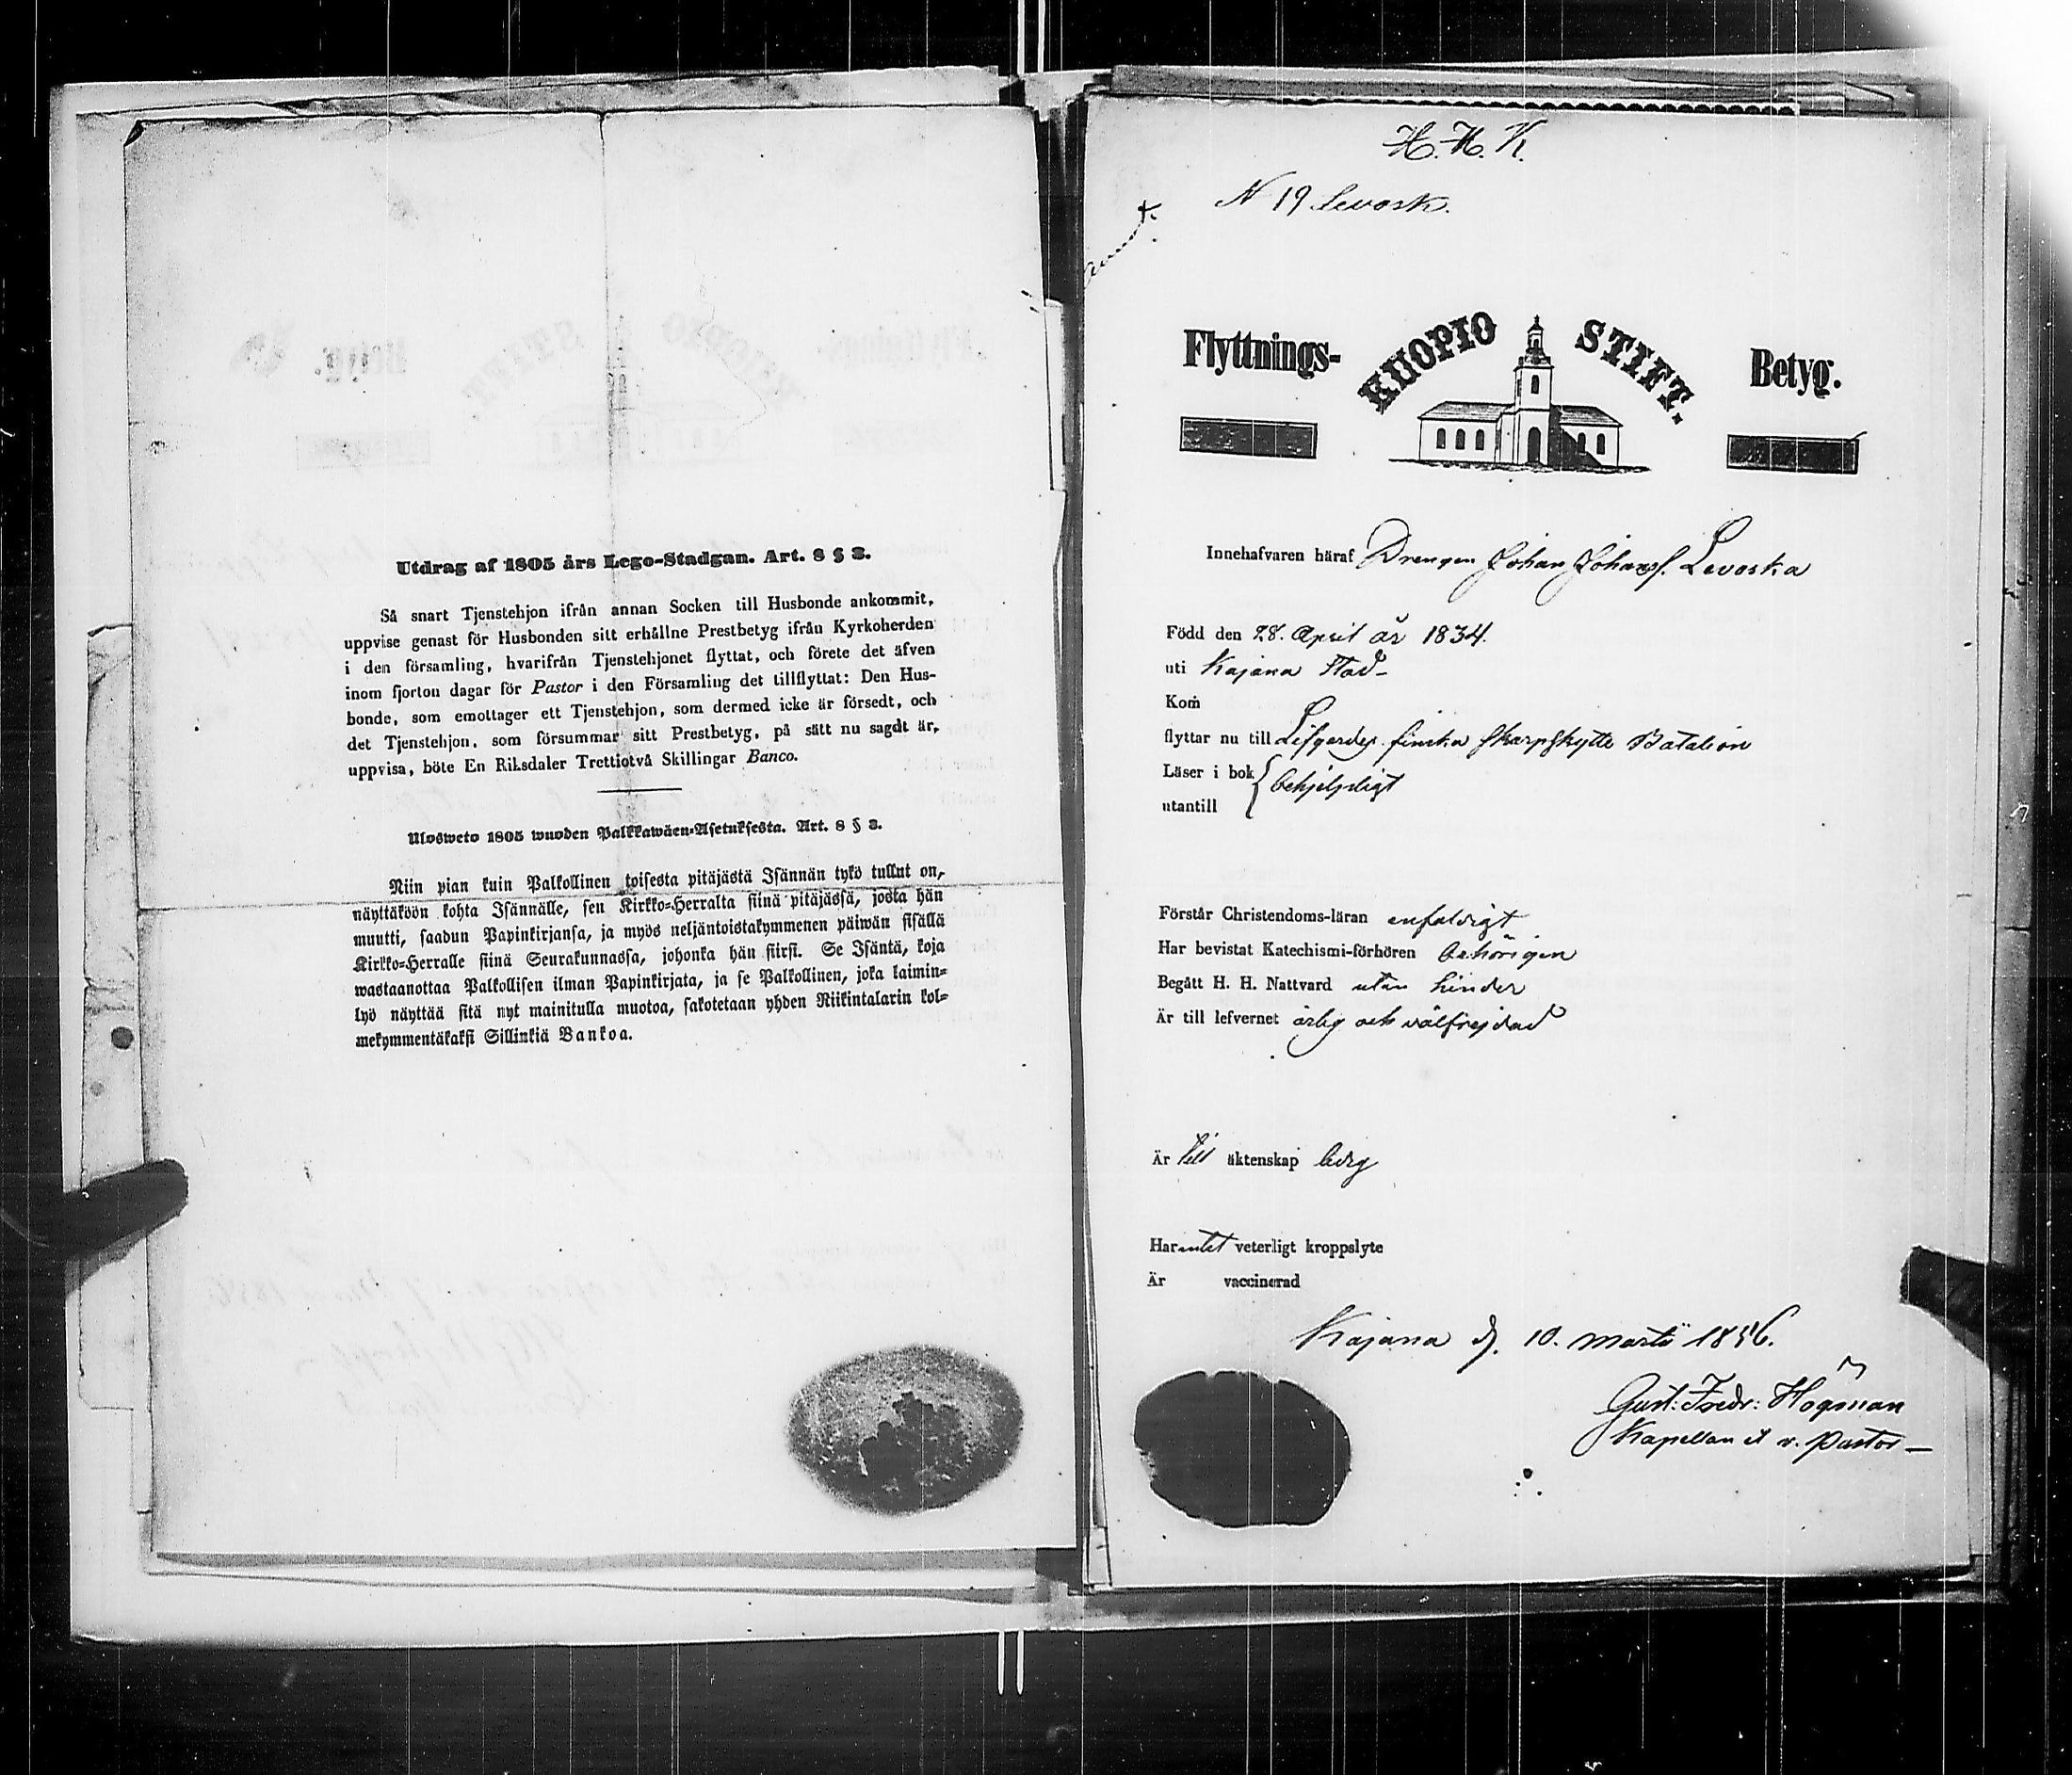 Utdrag af 1805 års Lego-Stadgan. Art. 8 § 3.
Så snart Tjenstehjon ifrån annan Socken till Husbonde ankommit,
uppvise genast för Husbonden sitt erhållne Prestbetyg ifrån Kyrkoherden
i den församling, hvarifrån Tjenstehjonet flyttat, och förete det äfven
inom fjorton dagar för Pastor i den Församling det tillflyttat: Den Hus-
bonde, som emottager ett Tjenstehjon, som dermed icke är försedt, och
det Tjenstehjon, som försummar sitt Prestbetyg, på sätt nu sagdt är,
uppvisa, böte En Riksdaler Trettiotvå Skillingar Banco.
Ulosweto 1805 wuoden Palkkawäen-Asetuksesta. Art. 8 § 3.
Niin pian kuin Palkollinen toisesta pitäjästä Isännän tykö tullut on,
näyttäköön kohta Isännälle, sen Kirkko-Herralta siinä pitäjässä, josta hän
muutti, saadun Papinkirjansa, ja myös neljäntoistakymmenen päiwän sisällä
Kirkko-Herralle siinä Seurakunnassa, johonka hän siirsi. Se Isäntä, koja
wastaanottaa Palkollisen ilman Papinkirjata, ja se Palkollinen, joka laimin-
lyö näyttää sitä nyt mainitulla muotoa, sakotetaan yhden Riikintalarin kol-
mekymmentäkaksi Sillinkiä Bankoa.
H. H. K.
N 19 Levosk.
Flyttnings- KUOPIO STIFT. Betyg.
Innehafvaren häraf Drengen Johan Johansf. Levoska
Född den 28. April år 1834.
uti Kajana Stad-
Kom̄
flyttar nu till Lifgardes finska Skarpskytte Batalion
Läser i bok } behjelpligt
utantill
Förstår Christendoms-läran enfaldigt
Har bevistat Katechismi-förhören behörigen
Begått H. H. Nattvard utan hinder
Är till lefvernet ärlig och välfrejdad
Är till äktenskap ledig
Har intet veterligt kroppslyte
Är vaccinerad
Kajana d. 10. Martii 1856.
Gust: Fredr: Högman
Kapellan et v. Pastor-